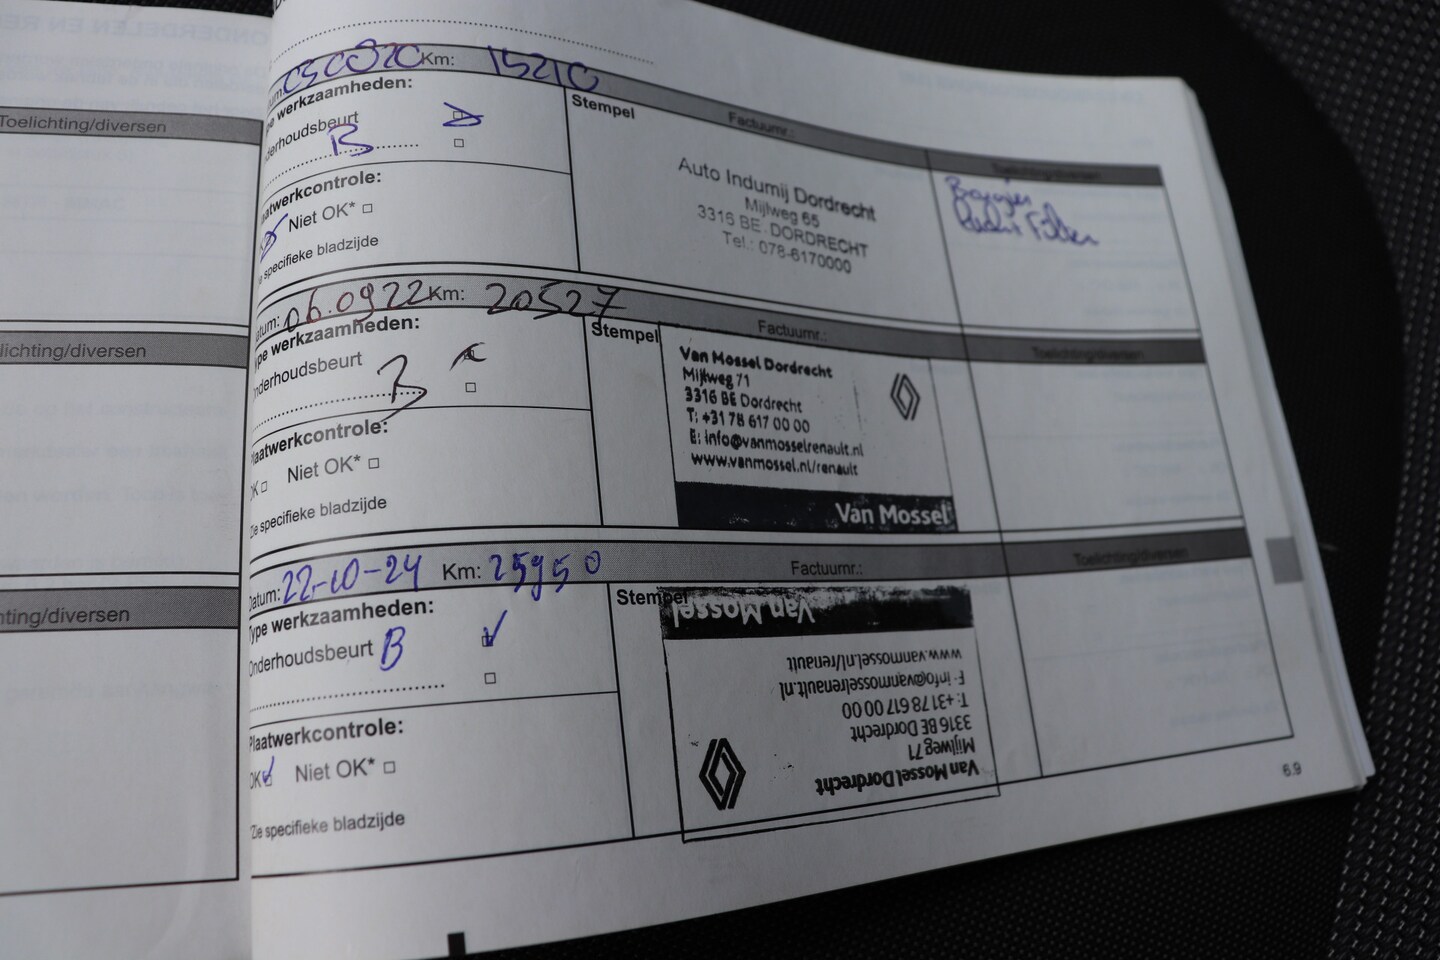 Toelichting/diversen
lichting/diversen
hting/diversen
050820 Km: 15210
werkzaamheden:
Onderhoudsbeurt
B
Plaatwerkcontrole:
Niet OK*
specifieke bladzijde
Stempel
Factuurnr.:
Auto Indumij Dordrecht
Mijlweg 65
3316 BE. DORDRECHT
Tel.: 078-6170000
Toelichting/diversen
Filter
Datum: 06.0922 Km: 20527
Type werkzaamheden:
Onderhoudsbeurt
B
Plaatwerkcontrole:
OK Niet OK*
Zie specifieke bladzijde
Stempel
Factuurnr.:
Van Mossel Dordrecht
Mijlweg 71
3316 BE Dordrecht
T: +31 78 617 00 00
E: info@vanmosselrenault.nl
www.vanmossel.nl/renault
Van Mossel
Toelichting/diversen
Datum: 22-10-24 Km: 25950
Type werkzaamheden:
Onderhoudsbeurt B
Plaatwerkcontrole:
OK Niet OK*
*Zie specifieke bladzijde
Stempel
Factuurnr.:
Van Mossel Dordrecht
Mijlweg 71
3316 BE Dordrecht
T: +31 78 617 00 00
E: info@vanmosselrenault.nl
www.vanmossel.nl/renault
Van Mossel
Toelichting/diversen
6.9